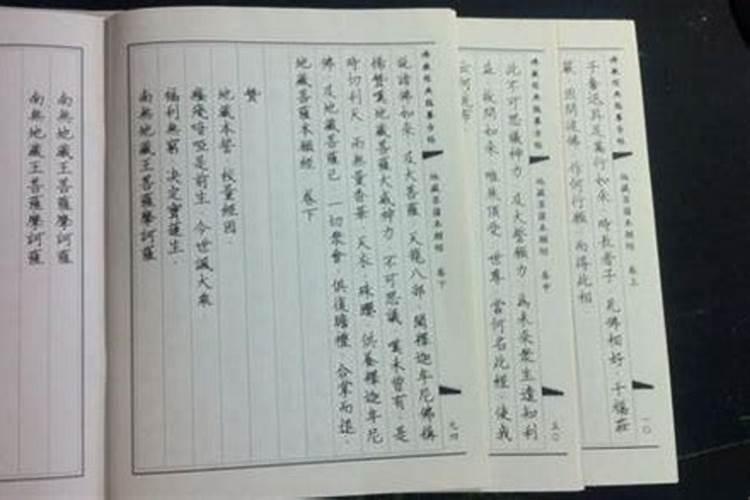 地藏菩薩本願經 卷上
一〇
子奮迅具足萬行如來 時長者子 見佛相好 千福莊
嚴 因問彼佛 作何行願 而得此相
地藏菩薩本願經 卷中
五〇
此不可思議神力 及大誓願力 為未來眾生遠知利
益 故問如來 唯然頂受 世尊 當何名此經 使我
云何流布
地藏菩薩本願經 卷下
九四
說諸佛如來 及大菩薩 天龍八部 聞釋迦牟尼佛稱
揚讚嘆地藏菩薩大威神力 不可思議 嘆未曾有 是
時忉利天 雨無量香華 天衣 珠瓔 供養釋迦牟尼
佛 及地藏菩薩已 一切眾會 俱復瞻禮 合掌而退.
地藏菩薩本願經 卷下
贊
地藏本誓 校量經因.
癃殘喑啞是前生 今世誦大乘
福利無窮 決定寶蓮生.
南無地藏王菩薩摩訶薩
南無地藏王菩薩摩訶薩
南無地藏王菩薩摩訶薩